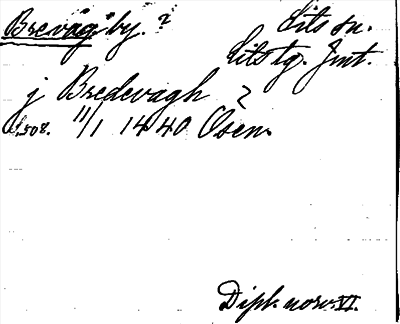 "Breväg" by. ?
Lits sn.
Lits tg. Jmt.
j Bredevagh ?
s. 508. 11/1 1440 Osen.
Dipl. norv. VI.